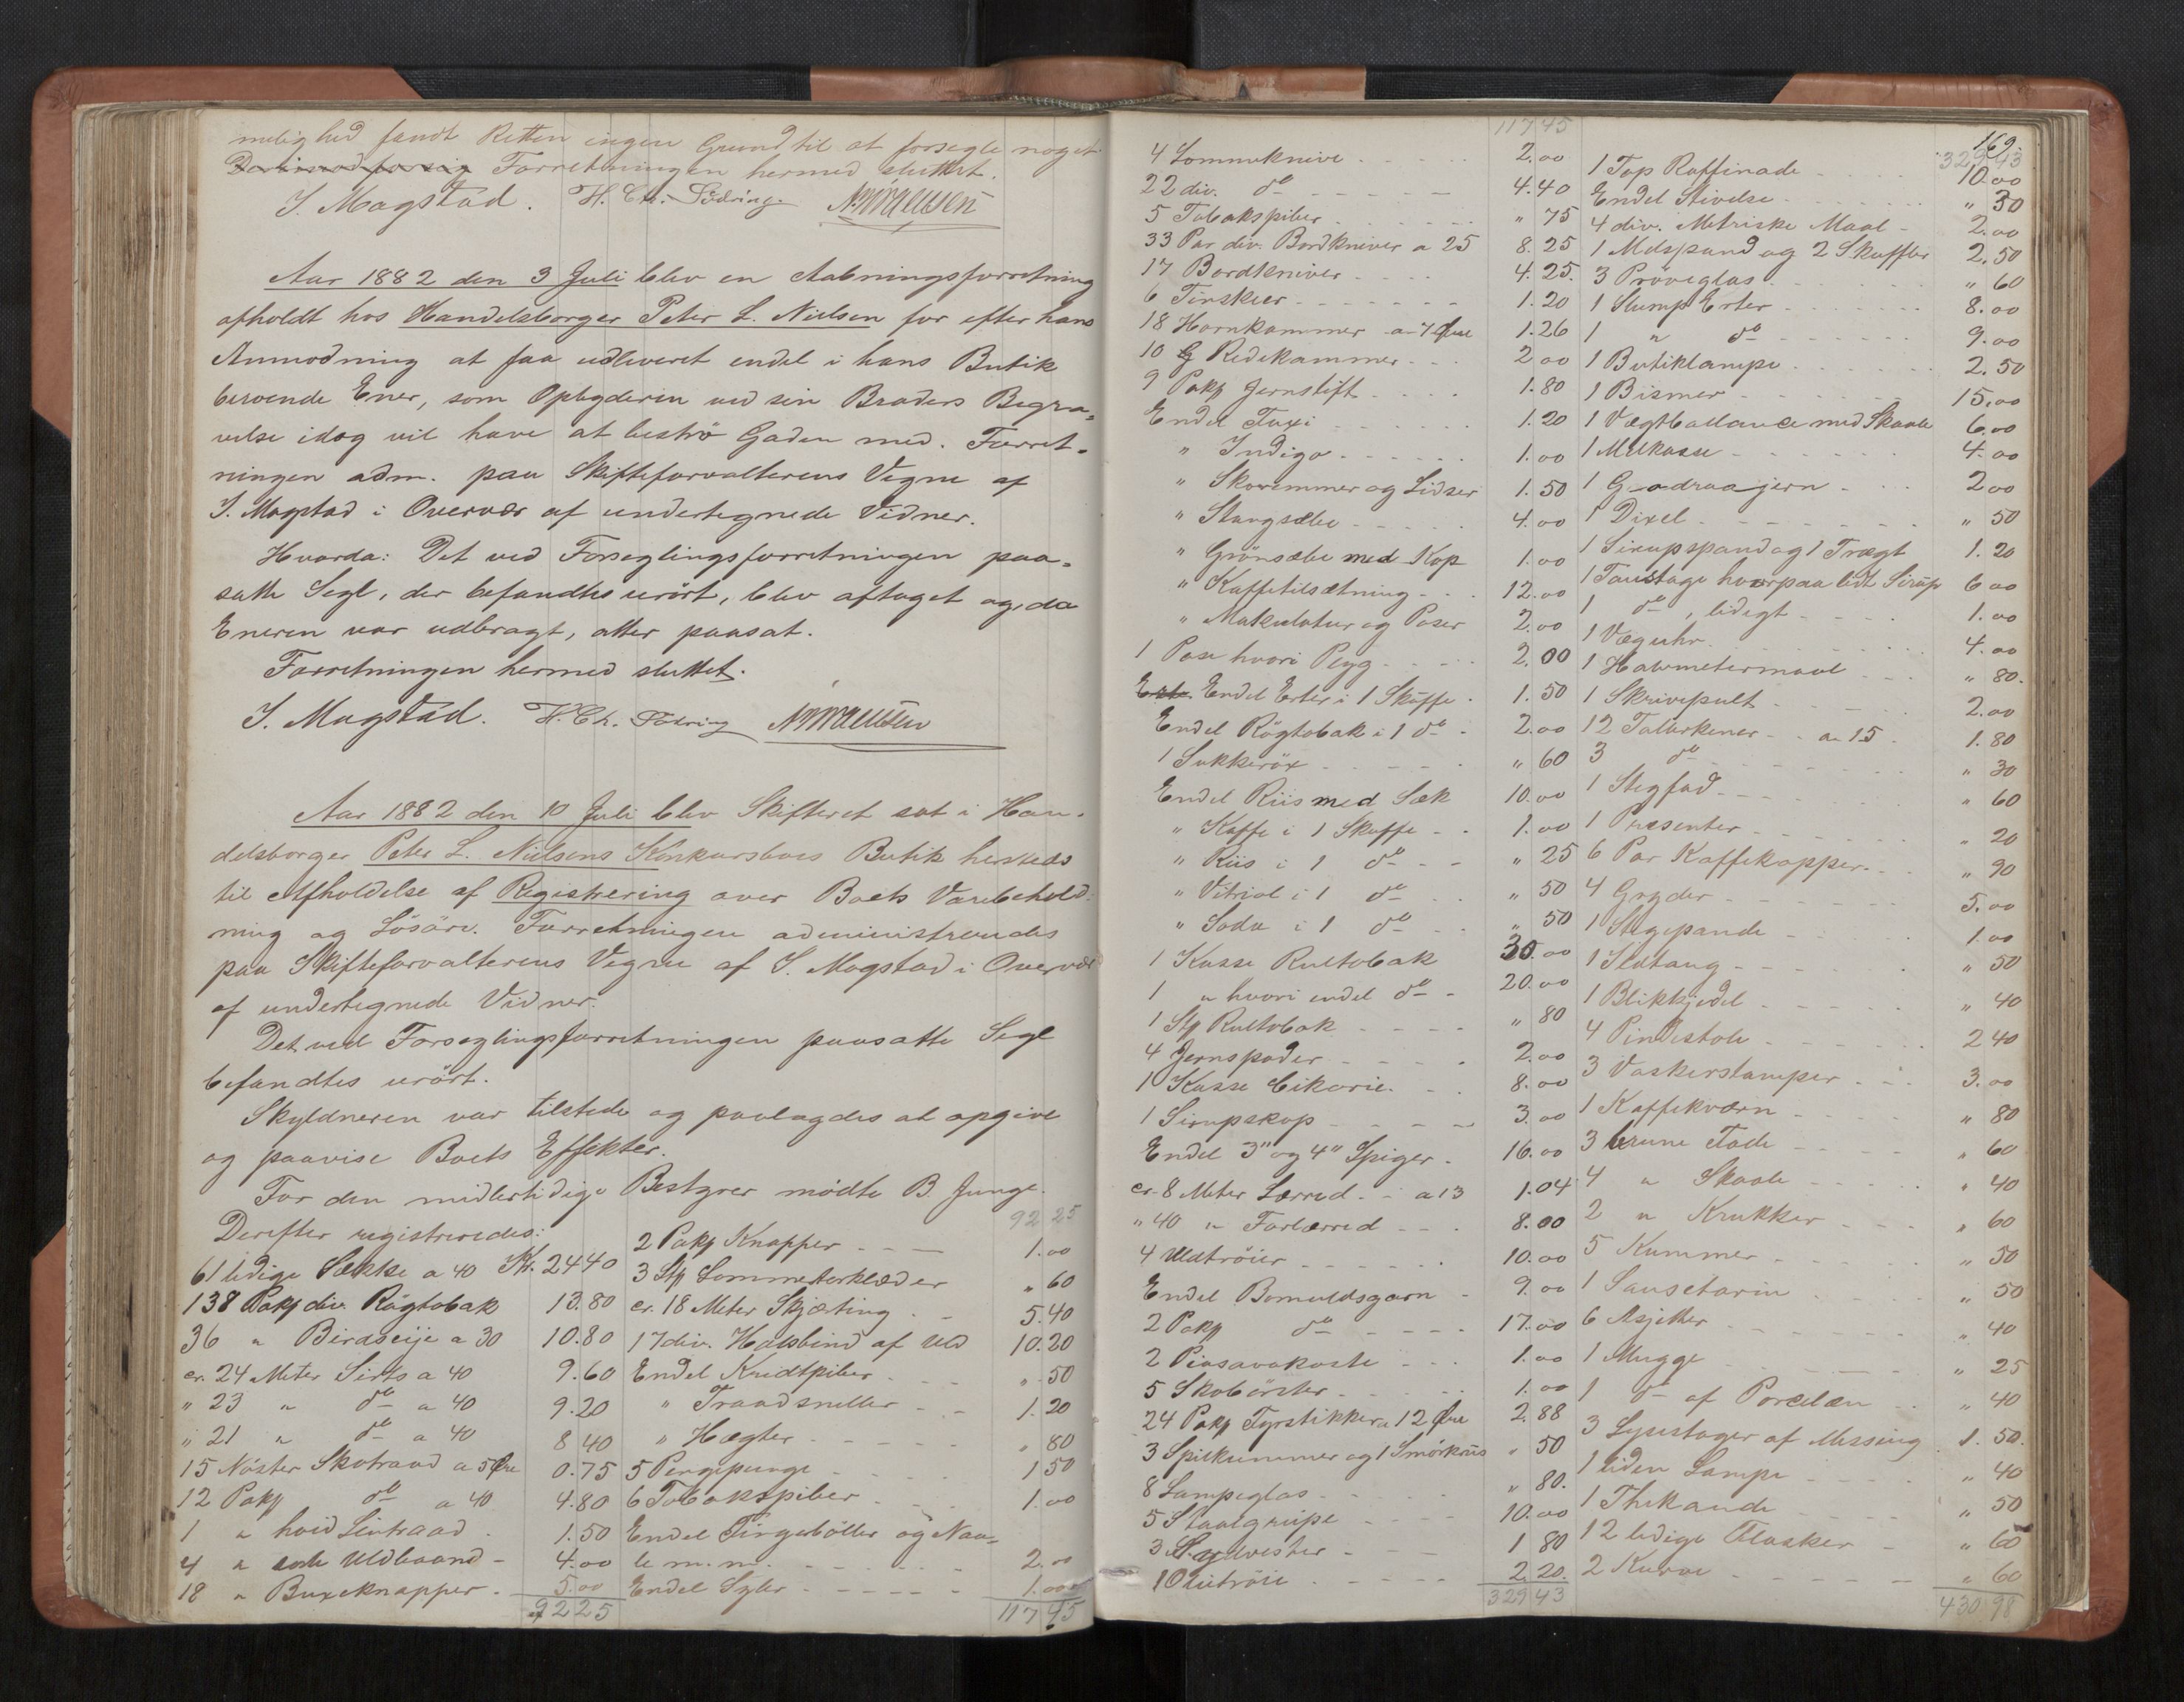 melighed fandt Retten ingen Grund til at forsegle noget.
Forretningen hermed sluttet.
I. Magstad. H. Chr. Fødring.
Aar 1882 den 3 Juli blev en Aabningsforretning
afholdt hos Handelsborger Peter L. Nielsen for efter hans
Anmodning at faa udleveret endel i hans Butik
beroende Ener, som Opbyderen ved sin Broders Begra-
velse idag vil have at bestrø Gaden med. Forret-
ningen adm. paa Skifteforvalterens Vegne af
I. Magstad i Overvær af undertegnede Vidner.
Hvorda: Det ved Forseglingsforretningen paa-
satte Segl, der befandtes urört, blev aftaget og, da
Eneren var udbragt, atter paasat.
Forretningen hermed sluttet.
I. Magstad. H. Ch. Fødring
Aar 1882 den 10 Juli blev Skifteret sat i Han-
delsborger Peter L. Nielsens Konkursboes Butik hersteds
til Afholdelse af Registrering over Boets Varebehold-
ning og Lösöre. Forretningen administreredes
paa Skifteforvalterens Vegne af I. Magstad i Overvær
af undertegnede Vidner.
Det ved Forseglingsforretningen paasatte Segl
befandtes urört.
Skyldneren var tilstede og paalagdes at opgive
og paavise Boets Effekter.
For den midlertidige Bestyrer mödte B. Junge.
Derefter registreredes:
61 ledige Sække a 40 Kr. 24 40
138 Pakp div. Rögtobak 13.80
36 " Birdseije a 30 10.80
cr. 24 Meter Sirts a 40 9.60
" 23 " do a 40 9.20
" 21 " do a 40 8 40
15 Nöster Skotraad a 5 Øre 0.75
12 Pakp do a 40 4.80
1 " hvid Lintraad 1.50
4 " Uldbaand - 4.00
18 " Buxeknapper - 5.00
92 25
92 25
2 Pakp Knapper 1.00
3 Stp Sommertörklæder " 60
cr. 18 Meter Skjæting 5.40
17 div. Halsbind af Uld 10.20
Endel Kridtpiber " 50
" Traadsneller 1.20
" Hægter " 80
5 Pengepunge 1 50
6 Tobakspiber 1.00
Endel Fingerböller og Naa-
le m.m. 2.00
Endel Syler 1.00
117 45
117 45
4 Lommeknive 2.00
22 div. do 4.40
5 Tobakspiber " 75
33 Par div. Bordkniver a 25 8.25
17 Bordkniver 4.25.
6 Tinskeer 1.20
18 Hornkammer a 7 Øre 1.26
10 Redekammer 2 00
9 Pakp Jernstift 1.80
Endel Tuxi 1.20
" Indigo 1.00
" Skoremmer og Lidser 1.50
" Stangsæbe 4.00
" Grönsæbe med Kop 1.00
" Kaffetilsætning 12.00
" Makulatur og Poser 2.00
1 Pose hvori Pegg 2.00
Endel Erter i 1 Skuffe 1.50
Endel Rögtobak i 1 do 2.00
1 Sukkeröx " 60
Endel Riis med Sæk 10.00
" Kaffe i 1 Skuffe 1.00
" Riis i 1 do " 25
" Vitriol i 1 do " 50
" Soda i 1 do " 50
1 Kasse Rultobak 30.00
1 " hvori endel do 20.00
1 Stp Rultobak " 80
4 Jernspader 2.00
1 Kasse Cikorie 8.00
1 Sirupskop 3.00
Endel 3" og 4" Spiger 16.00
cr. 8 Meter Lærred a 13 1.04
" 40 " Forlærred 8.00
4 Uldtröier 10.00
Endel Bomuldsgarn 9.00
2 Pakp do 17.00
2 Piasavakoste 1.00
5 Skobörster 1.00
24 Pakp Fyrstikker a 12 Øre 2.88
3 Spilkummer og 1 Smörkrus " 50
8 Lampeglas " 80.
5 Staalgreipe 10.00
3 Sydvester 1 80
1 Olietröie 2.20.
329 43
169.
329 43
1 Top Raffinade 10.00
Endel Stivelse " 30
4 div. Metriske Maal 2.00
1 Melspand og 2 Skuffer 2.50
3 Pröveglas " 60
1 Slump Erter 8.00
1 " do 9.00
1 Butiklampe 2.50
1 Bismer 15.00
1 Vægtballance med Skaale 6.00
1 Melkasse 4.00
1 2 00
1 Dixel " 50
1 Sirupsspand og 1 Tragt 1.20
1 Taustage hvorpaa lidt Sirup 6 00
1 do, ledigt 1.00
1 Væguhr 4.00
1 Halvmetermaal " 80.
1 Skrivepult 2.00
12 Tallerkener a 15 1.80
3 do " 30
1 Stegfad " 60
1 Presenter " 20
6 Par Kaffekopper " 90
4 Gryder 5.00
1 Stegepande 1.00
1 Ildtang " 50
1 Blikkjedel " 40
4 Pindestole 2 40
3 Vaskerstamper 3.00
1 Kaffekværn " 80
3 brune Fade " 60
4 " Skaale " 40
2 " Krukker " 60
5 Kummer " 50
1 Sauseterin " 50
6 Asjetter " 40
1 Mugge " 25
1 do af Porcelæn " 40
3 Lysestager af Messing 1.50.
1 liden Lampe " 40
1 Thekande " 50
12 ledige Flasker " 60
2 Kurve " 60
430 98